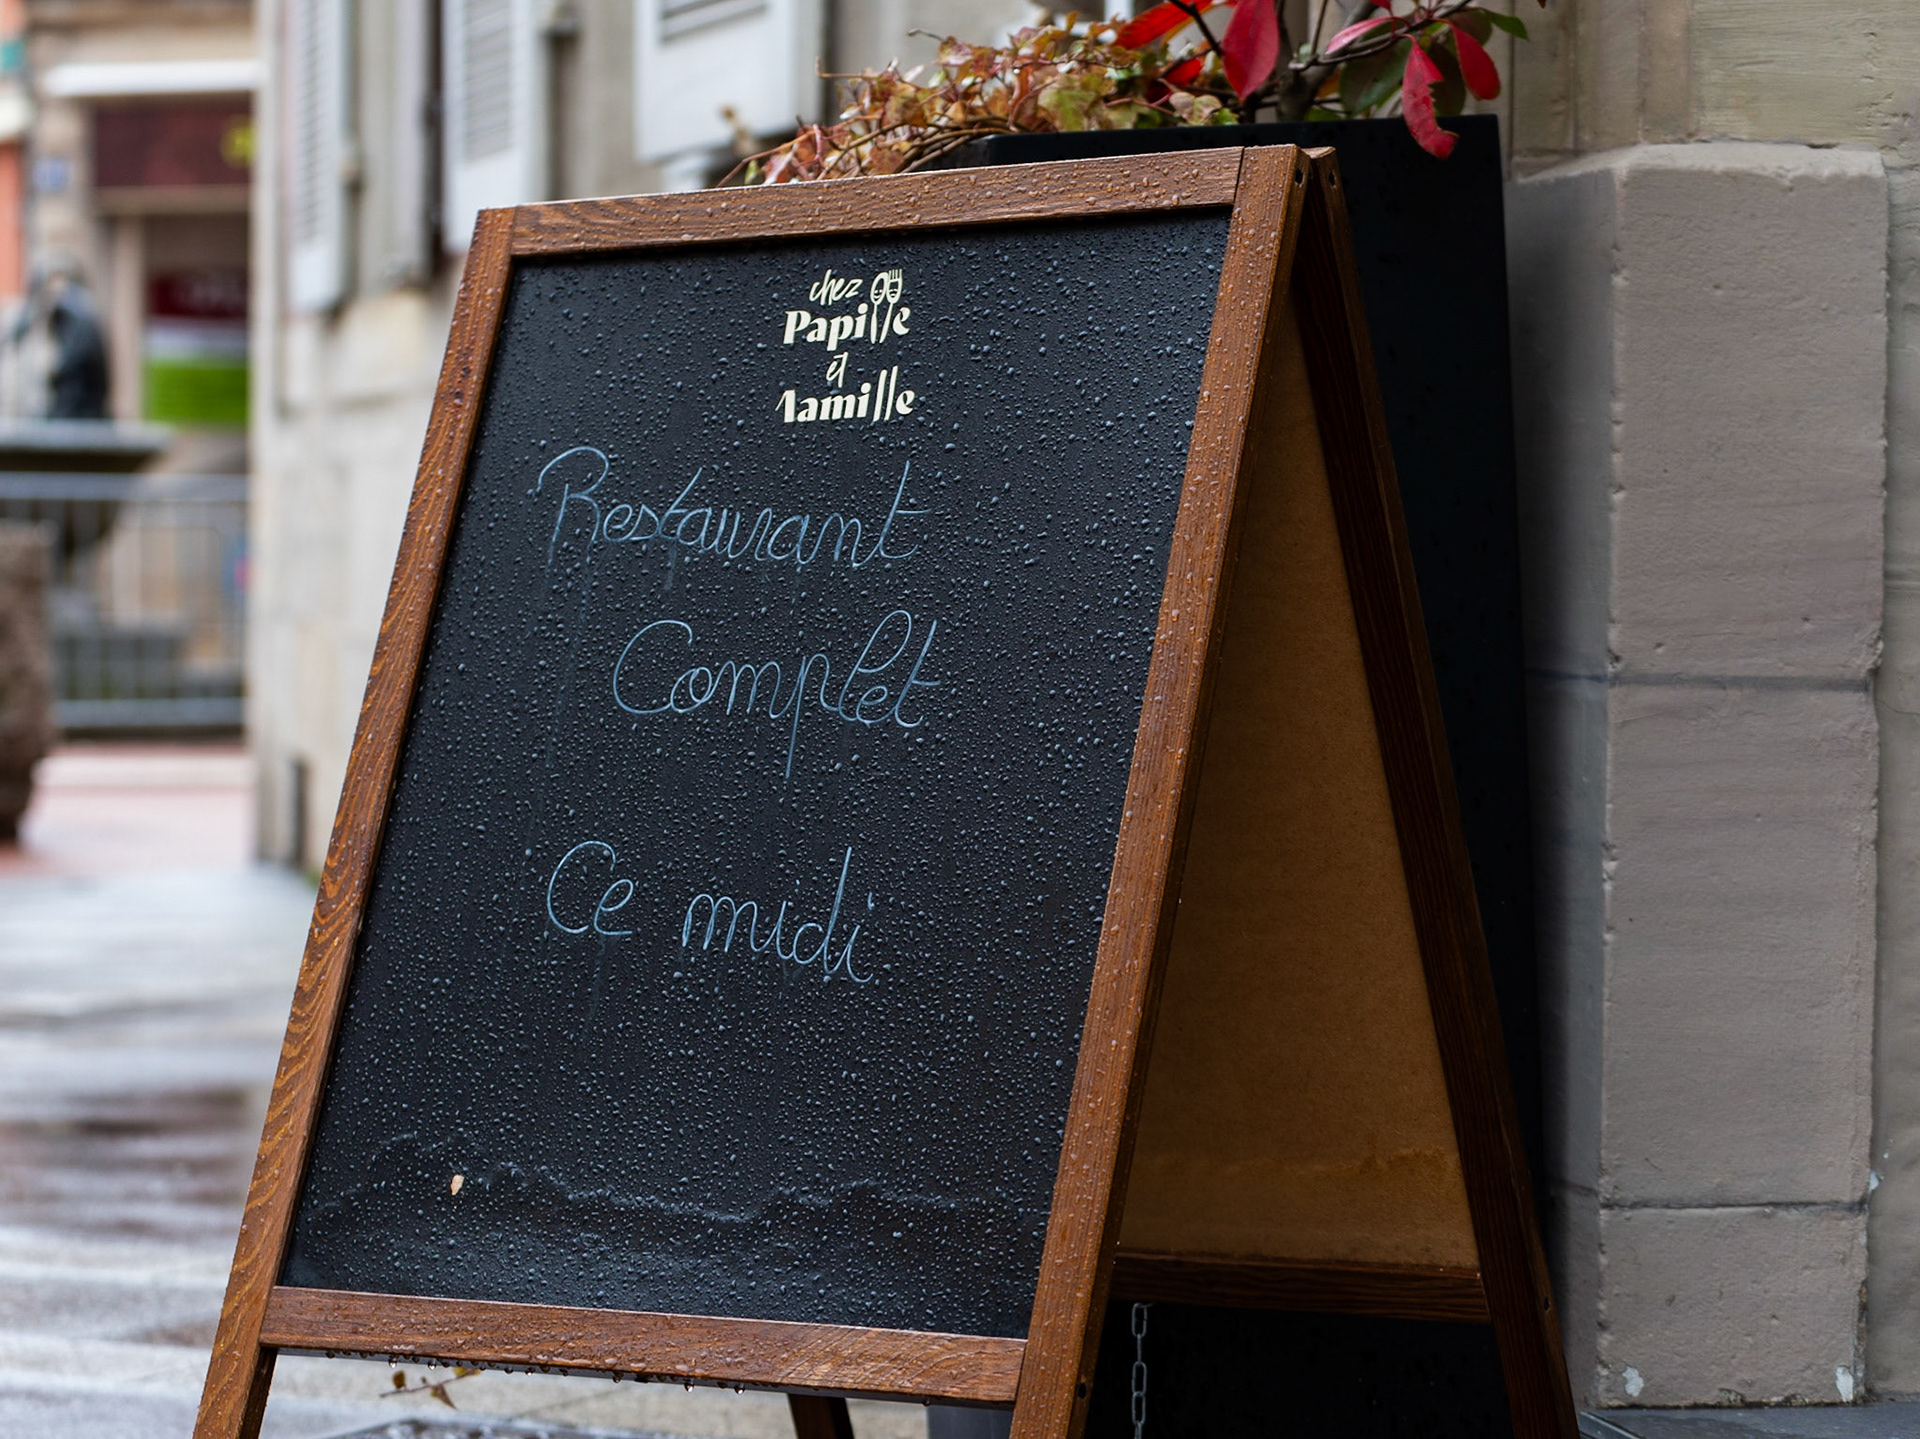 chez
Papille
et
Mamille
Restaurant
Complet
Ce midi